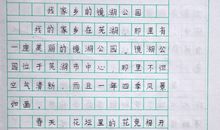 我家乡的镜湖公园
我的家乡在芜湖，那里有
一座美丽的镜湖公园。镜湖公
园位于芜湖市中心，那里不但
空气清新，而且一年四季风景
如画。
春天，花坛里的花竞相开